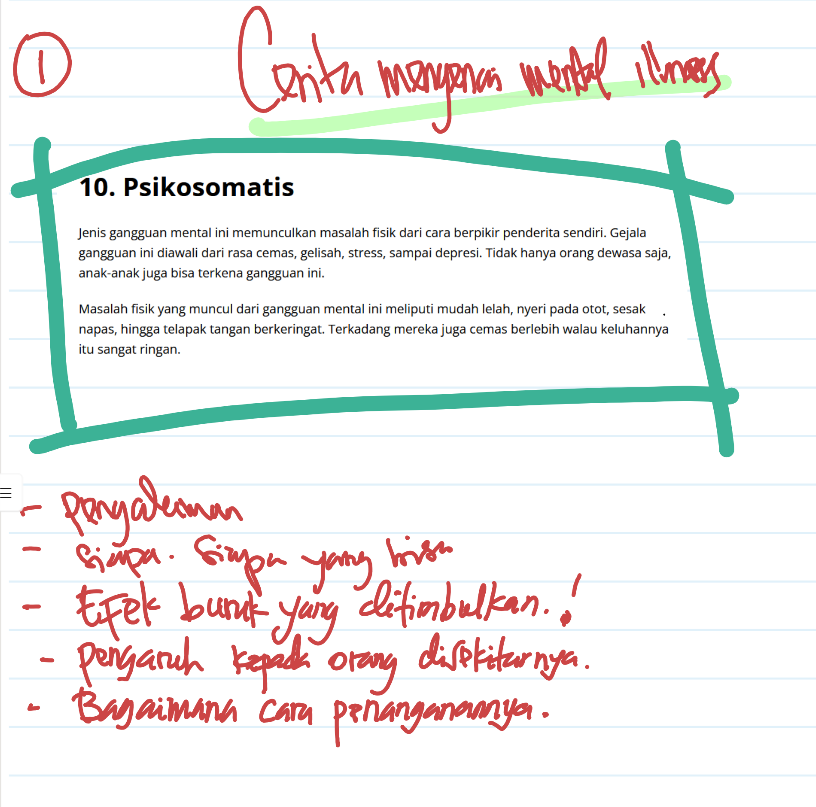 1
Cerita mengenai mental illness
10. Psikosomatis
Jenis gangguan mental ini memunculkan masalah fisik dari cara berpikir penderita sendiri. Gejala
gangguan ini diawali dari rasa cemas, gelisah, stress, sampai depresi. Tidak hanya orang dewasa saja,
anak-anak juga bisa terkena gangguan ini.
Masalah fisik yang muncul dari gangguan mental ini meliputi mudah lelah, nyeri pada otot, sesak
napas, hingga telapak tangan berkeringat. Terkadang mereka juga cemas berlebih walau keluhannya
itu sangat ringan.
- Pengalaman
- Siapa. Siapa yang bisa
- Efek buruk yang ditimbulkan.!
- Pengaruh kepada orang disekitarnya.
- Bagaimana cara penanganannya.